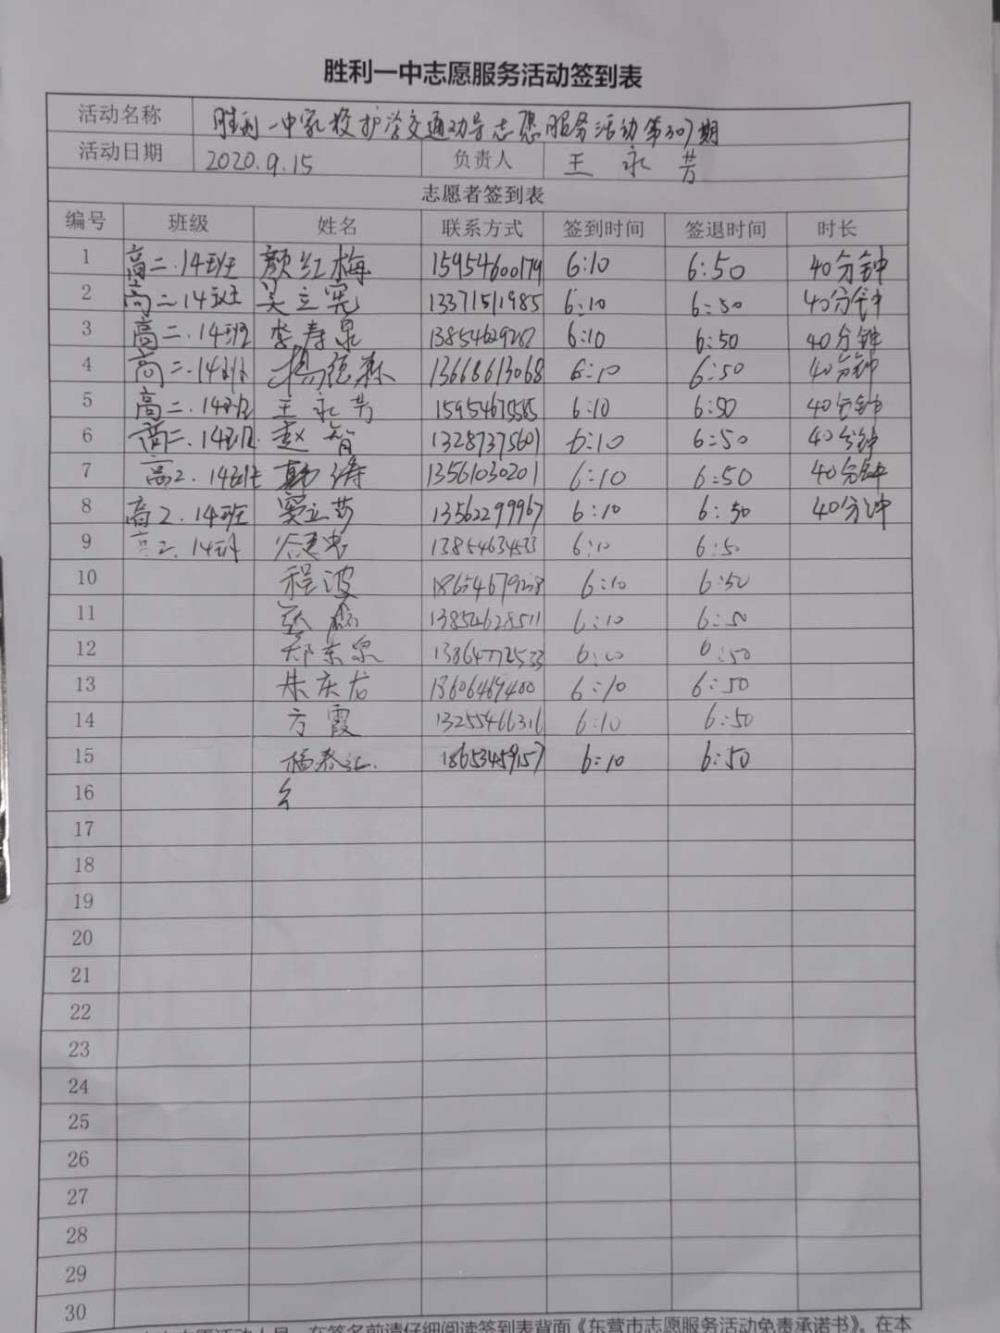 胜利一中志愿服务活动签到表
活动名称 胜利一中家校护学交通劝导志愿服务活动第307期
活动日期 2020.9.15 负责人 王永芳
志愿者签到表
编号 班级 姓名 联系方式 签到时间 签退时间 时长
1 高二.14班 颜红梅 15954600179 6:10 6:50 40分钟
2 高二14班 吴立宪 13371511985 6:10 6:50 40分钟
3 高二.14班 李寿泉 6:10 6:50 40分钟
4 高二.14班 杨德森 13668613068 6:10 6:50 40分钟
5 高二.14班 王永芳 6:10 6:50 40分钟
6 高二.14班 赵智 13287375601 6:10 6:50 40分钟
7 高2.14班 韩涛 13561030201 6:10 6:50 40分钟
8 高2.14班 窦立莎 13562299967 6:10 6:50 40分钟
9 高二.14班 13854634533 6:10 6:50
10 程波 6:10 6:50
11 13854628511 6:10 6:50
12 郑东泉 13864772533 6:10 6:50
13 朱庆龙 13606469400 6:10 6:50
14 方霞 13255466316 6:10 6:50
15 杨春江 18653459157 6:10 6:50
16
17
18
19
20
21
22
23
24
25
26
27
28
29
30
在签名前请仔细阅读签到表背面《东营市志愿服务活动免责承诺书》。在本